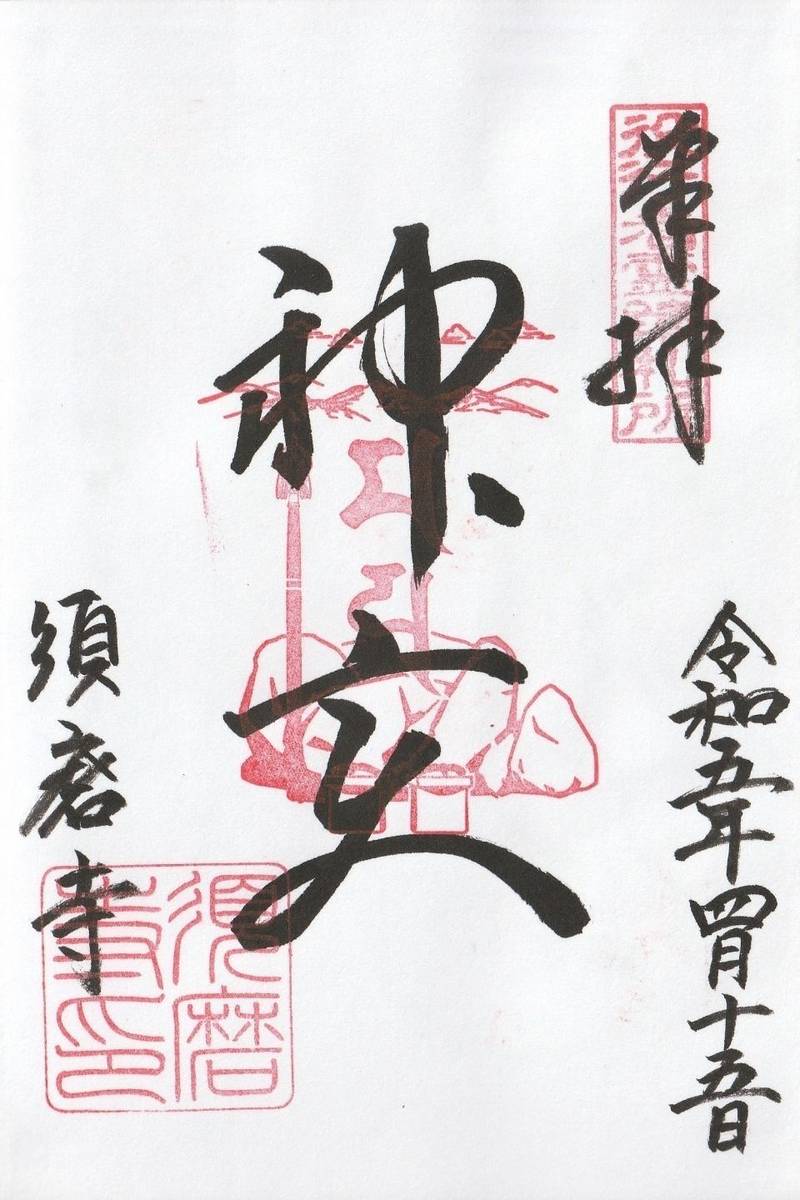 奉拝
令和五年四月十五日
神変
須磨寺
須磨
寺印